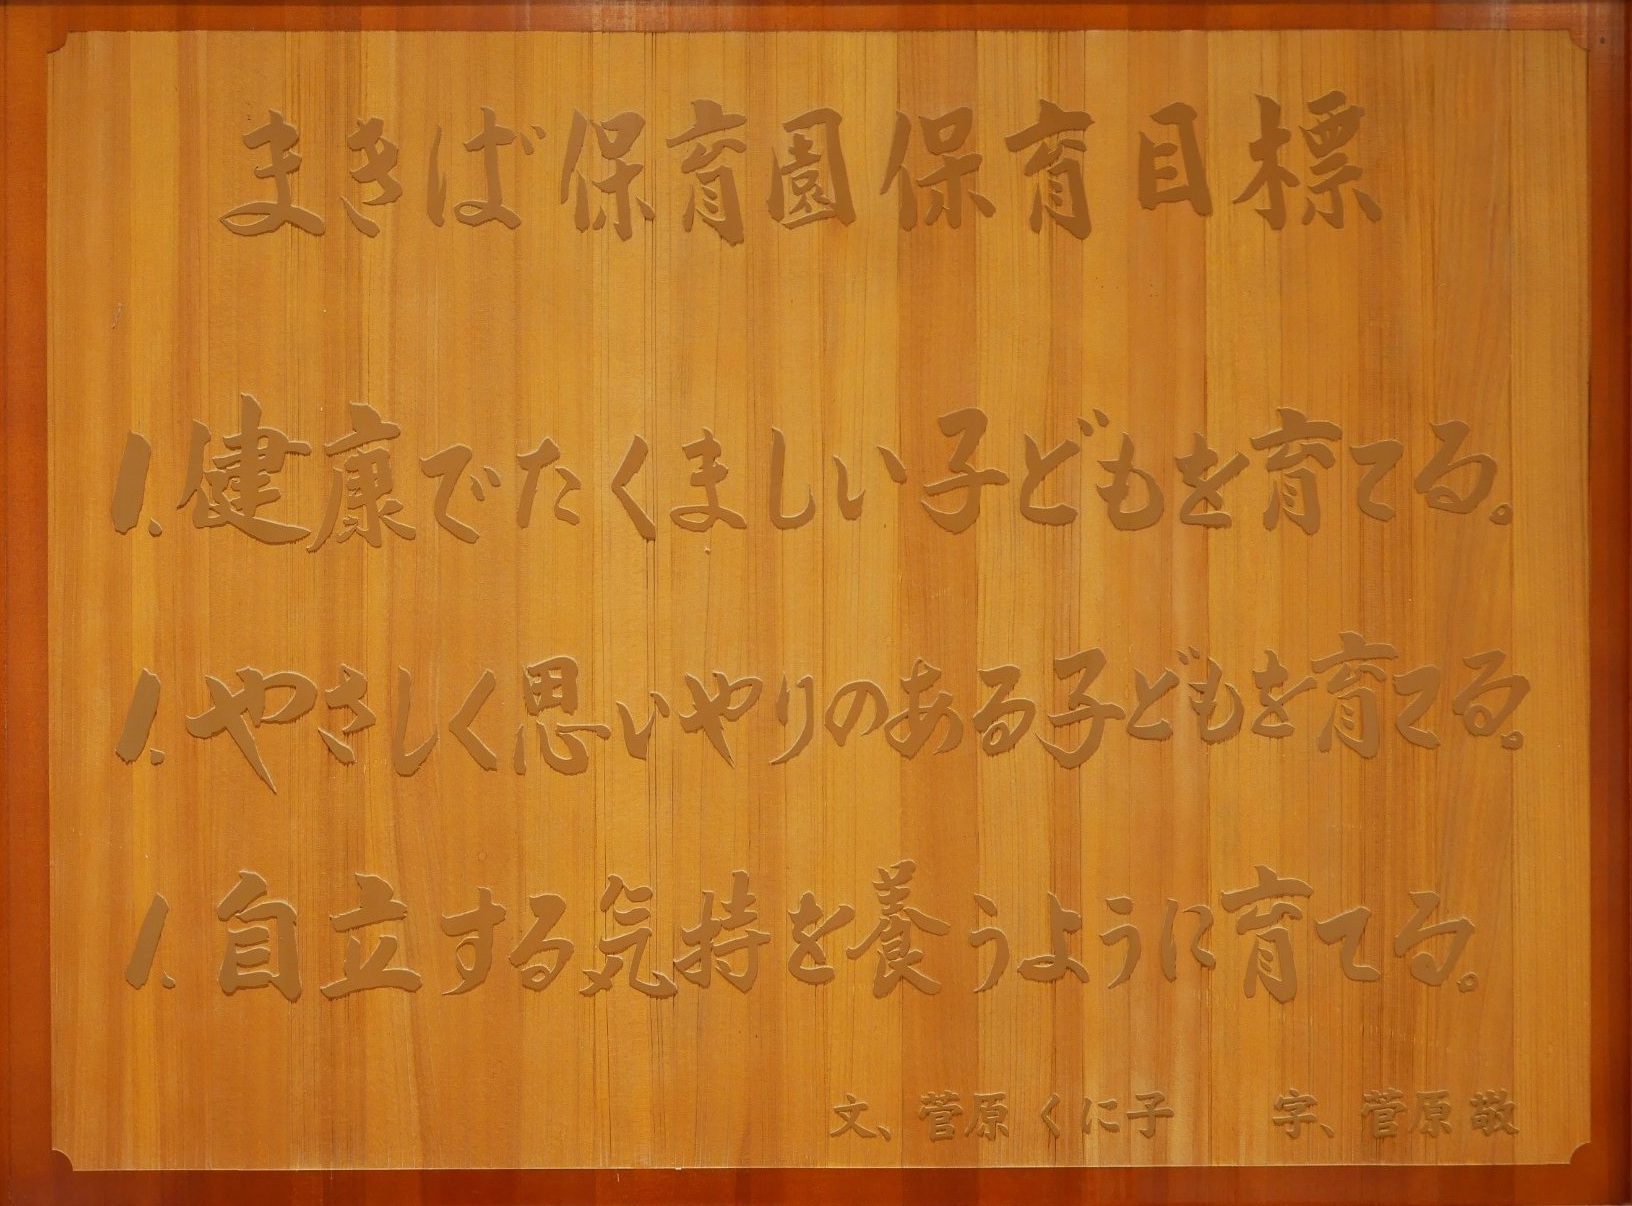 まきば保育園保育目標
1.健康でたくましい子どもを育てる。
1.やさしく思いやりのある子どもを育てる。
1.自立する気持を養うように育てる。
文、菅原くに子 字、菅原敬